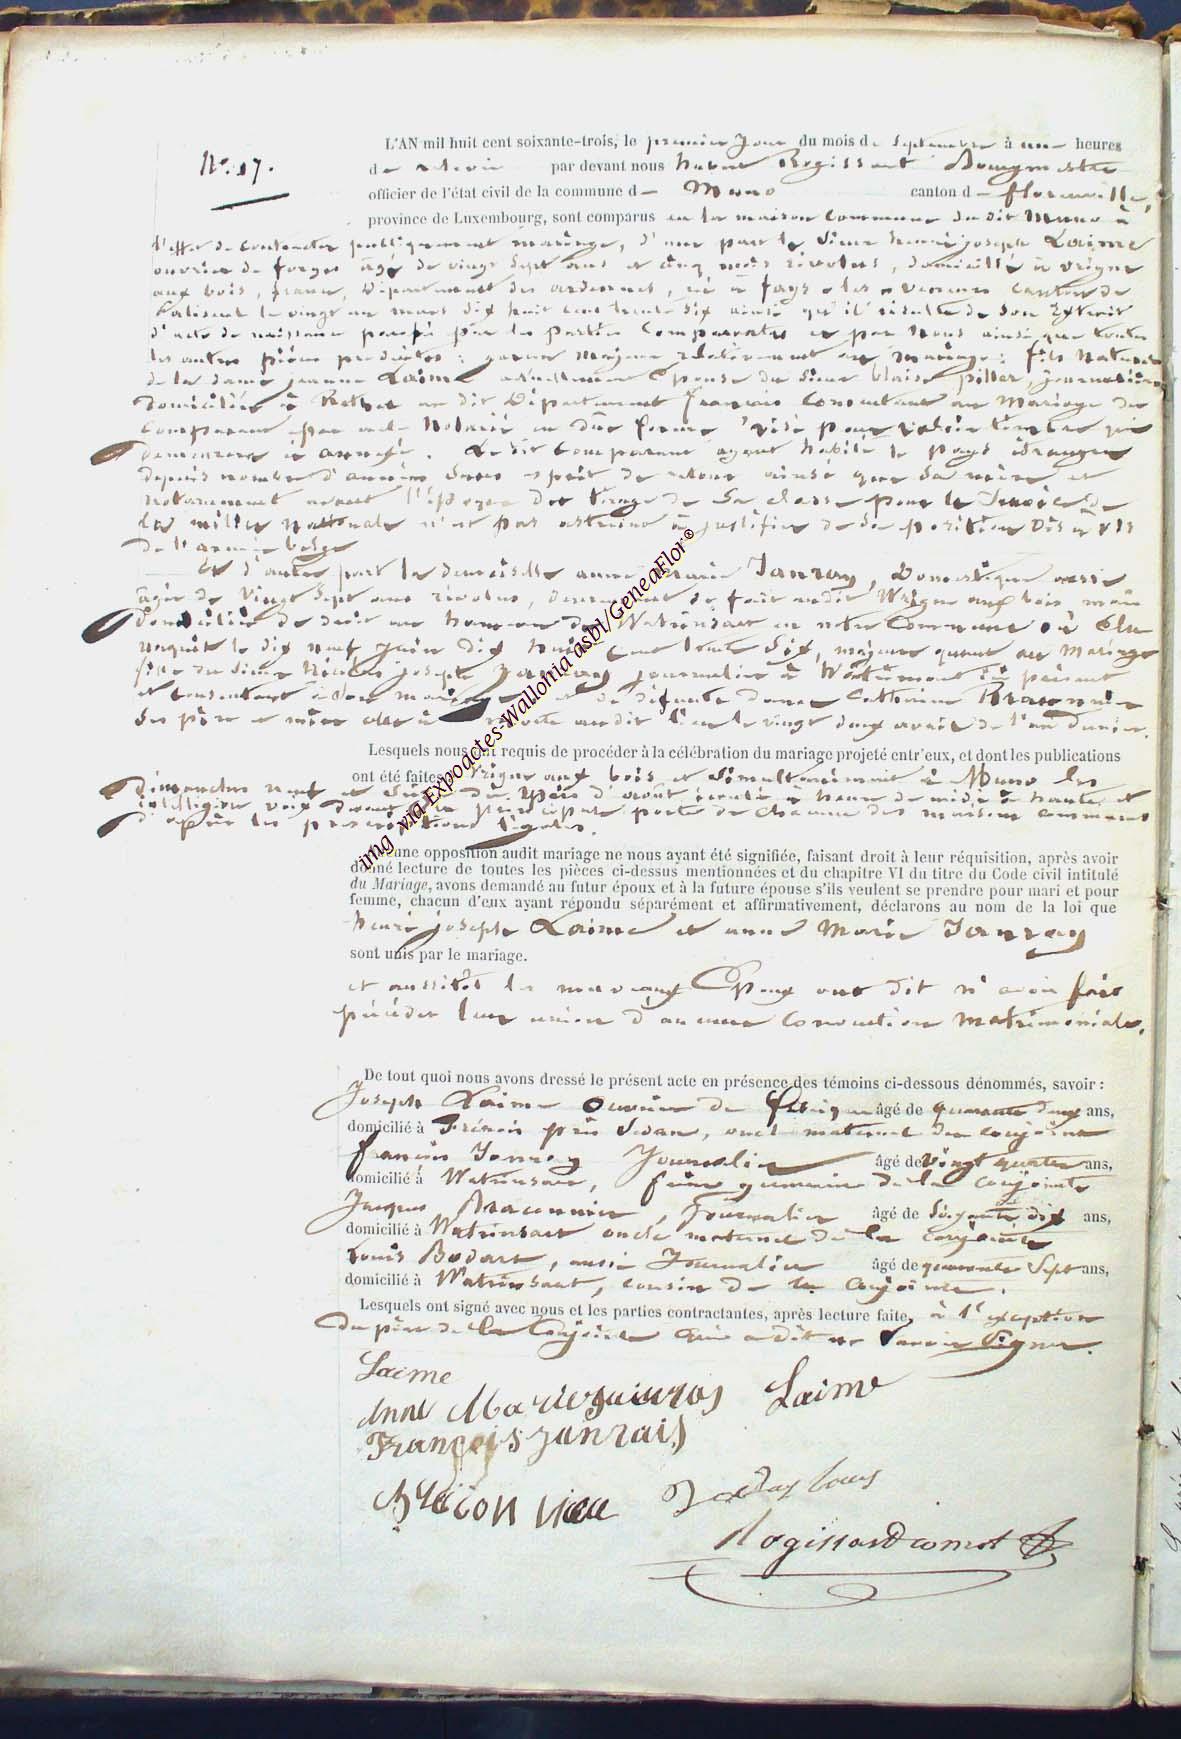 N°. 17.
L'AN mil huit cent soixante-trois, le premier jour du mois de Septembre à une heures
de relevée par devant nous hubert Rogissart Bourgmestre
officier de l'état civil de la commune d Muno canton d florenville,
province de Luxembourg, sont comparus en la maison commune du dit Muno à
l'effet de contracter publiquement mariage, d'une part le Sieur henri joseph Laime
ouvrier de forges âgé de vingt sept ans et cinq mois révolus, domicilié à vrigne
aux bois, france, Département des ardennes, né à fays les veneurs canton de
Paliseul le vingt un mars dix huit cent trente six ainsi qu'il résulte de son Extrait
d'acte de naissance paraphé par les parties comparantes et par nous ainsi que toutes
les autres pièces produites; garçon majeur relativement au mariage; fils naturel
de la dame jeanne Laime actuellement Epouse du sieur blaise pillar, journalière
domiciliée à Rethel au dit Département français consentant au Mariage du
comparant par acte Notarié en due forme visé pour valoir timbre qui
demeurera ci annexé. Le dit comparant ayant habité le pays étranger
depuis nombre d'années sans esprit de retour ainsi que sa mère et
notamment avant l'époque du tirage de sa classe pour le Service de
la milice Nationale n'est pas astreint à justifier de sa position vis à vis
de l'armée belge
Et d'autre part la demoiselle anne Marie Janray, Domestique aussi
âgée de vingt sept ans révolus, demeurant de fait audit Vrigne aux bois, mais
domiciliée de droit au hameau de Watrinsart en notre commune où Elle
naquit le dix neuf juin dix huit cent trente six, majeure quant au Mariage
fille du Sieur Nicolas joseph Janray journalier à Watrinsart ici présent
et consentant à son mariage et de défunte dame Catherine Braconnier
ses père et mère celle-ci décédée audit lieu le vingt deux avril de l'an dernier.
Lesquels nous ont requis de procéder à la célébration du mariage projeté entr'eux, et dont les publications
ont été faites à Vrigne aux bois et simultanément à Muno les
Dimanches neuf et seize du mois d'aout écoulé à heure de midi à haute et
intelligible voix devant la principale porte de chacune des maisons communes
d'après les prescriptions légales.
Aucune opposition audit mariage ne nous ayant été signifiée, faisant droit à leur réquisition, après avoir
donné lecture de toutes les pièces ci-dessus mentionnées et du chapitre VI du titre du Code civil intitulé
du Mariage, avons demandé au futur époux et à la future épouse s'ils veulent se prendre pour mari et pour
femme, chacun d'eux ayant répondu séparément et affirmativement, déclarons au nom de la loi que
henri joseph Laime et anne Marie Janray
sont unis par le mariage.
et aussitôt les nouveaux Epoux ont dit n'avoir fait
précéder leur union d'aucune convention matrimoniale.
De tout quoi nous avons dressé le présent acte en présence des témoins ci-dessous dénommés, savoir :
Joseph Laime Ouvrier de fabrique âgé de quarante deux ans,
domicilié à Frénois près Sedan, oncle maternel du conjoint
françois Janray Journalier âgé de vingt quatre ans,
domicilié à Watrinsart, frère germain de la conjointe
Jacques Braconnier, Journalier âgé de Soixante dix ans,
domicilié à Watrinsart oncle maternel de la conjointe
Louis Bodart, aussi Journalier âgé de quarante Sept ans,
domicilié à Watrinsart, cousin de la conjointe.
Lesquels ont signé avec nous et les parties contractantes, après lecture faite, à l'exception
du père de la Conjointe qui a dit ne Savoir Signer.
Laime
Anne Marie janray Laime
François janrais
Braconnier
Louis
Rogissart
img via Expoactes-Wallonia asbl/GeneaFlor®